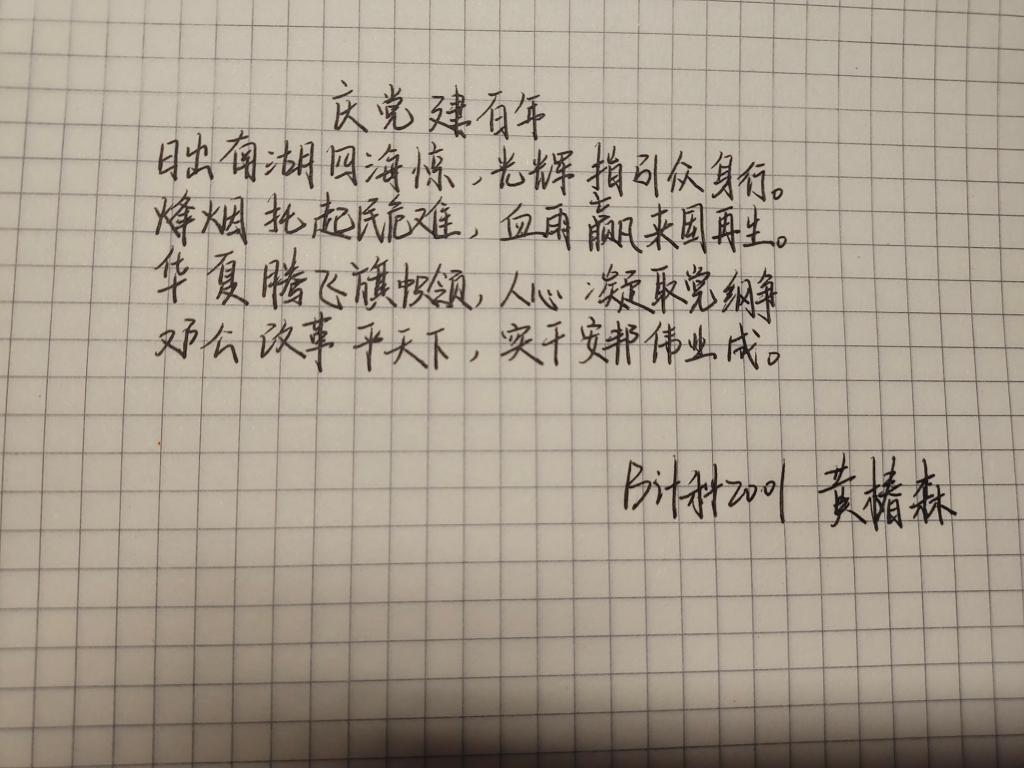 庆党建百年
日出南湖四海惊，光辉指引众身行。
烽烟托起民危难，血雨赢来国再生。
华夏腾飞旗帜领，人心凝聚党纲争
邓公改革平天下，实干安邦伟业成。
B计科2001 黄椿森